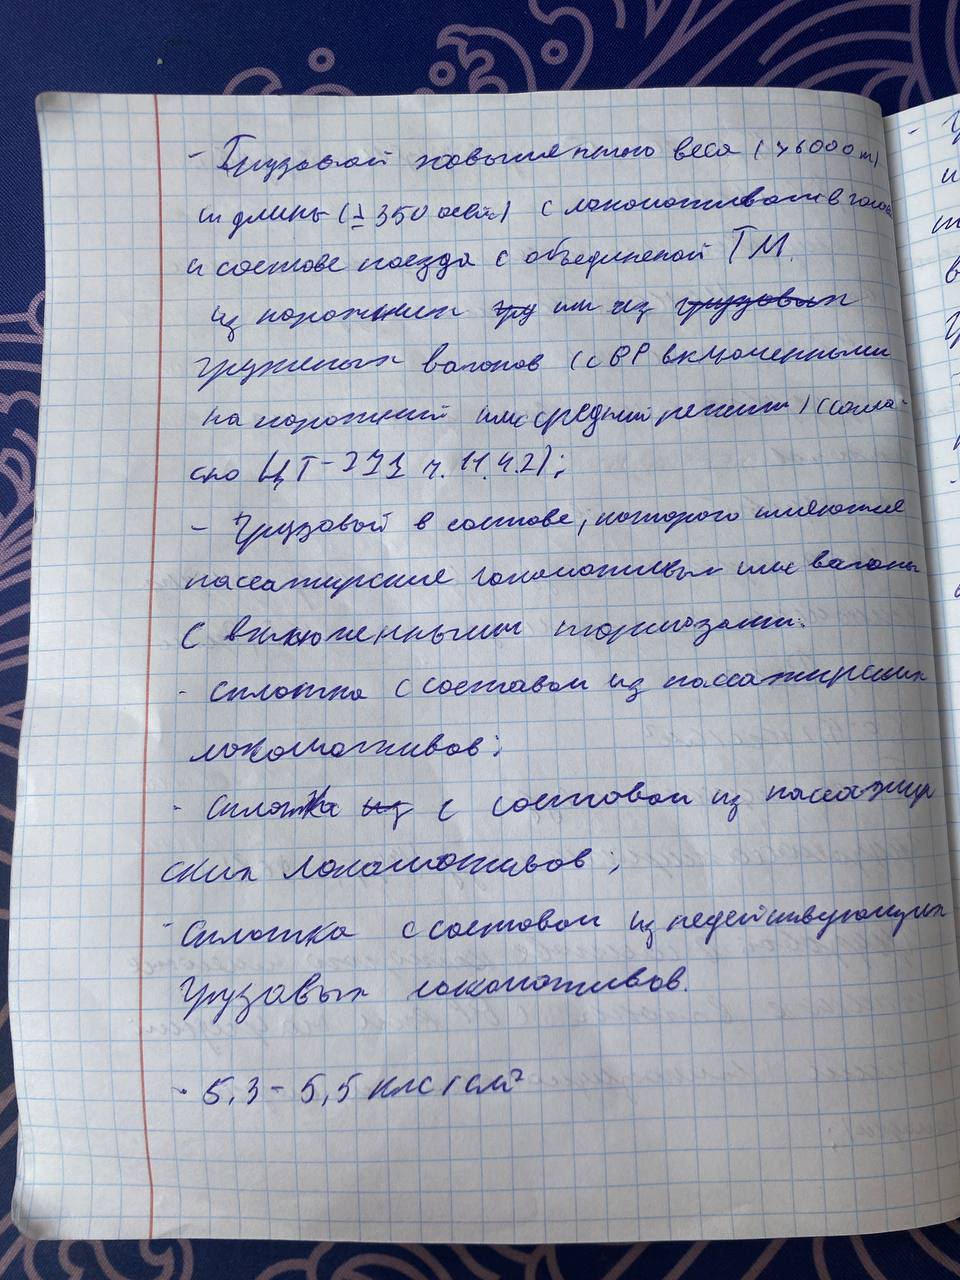 - Грузовой повышенного веса (>6000т)
и длины (≥350 осей) с локомотивами в голове
и составе поезда с объединеной ТМ.
из порожних гру или из грузовых
груженых вагонов (с ВР включенными
на порожний или средний режим) (согла-
сно ЦТ-277 п. 11.4.2);
- Грузовый в составе, которого имеются
пассажирские локомотивы или вагоны
с включенными тормозами.
- сплотка с составом из пассажирских
локомотивов;
- Сплотка из с составом из пассажир
ских локомотивов;
- Сплотка с составом из недействующих
грузовых локомотивов.
- 5,3 - 5,5 кгс/см²